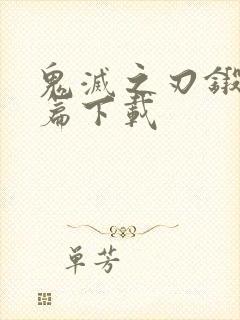 鬼滅之刃鍛
篇下載
单芳